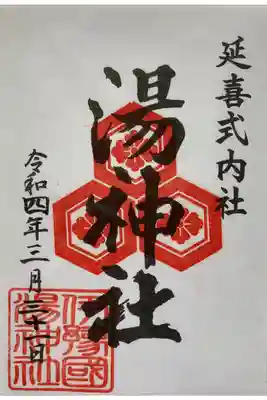 延喜式内社
湯神社
令和四年三月
伊豫國
湯神社